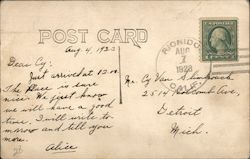 POST CARD
Aug. 4, 1923
Dear Cy:
Just arrived at 12.00.
The place is sure
nice. We just know
we will have a good
time. I will write to-
morrow and tell you
more.
Alice
AUG
7
1923
Mr. Cy Van
2514
Detroit
Mich.